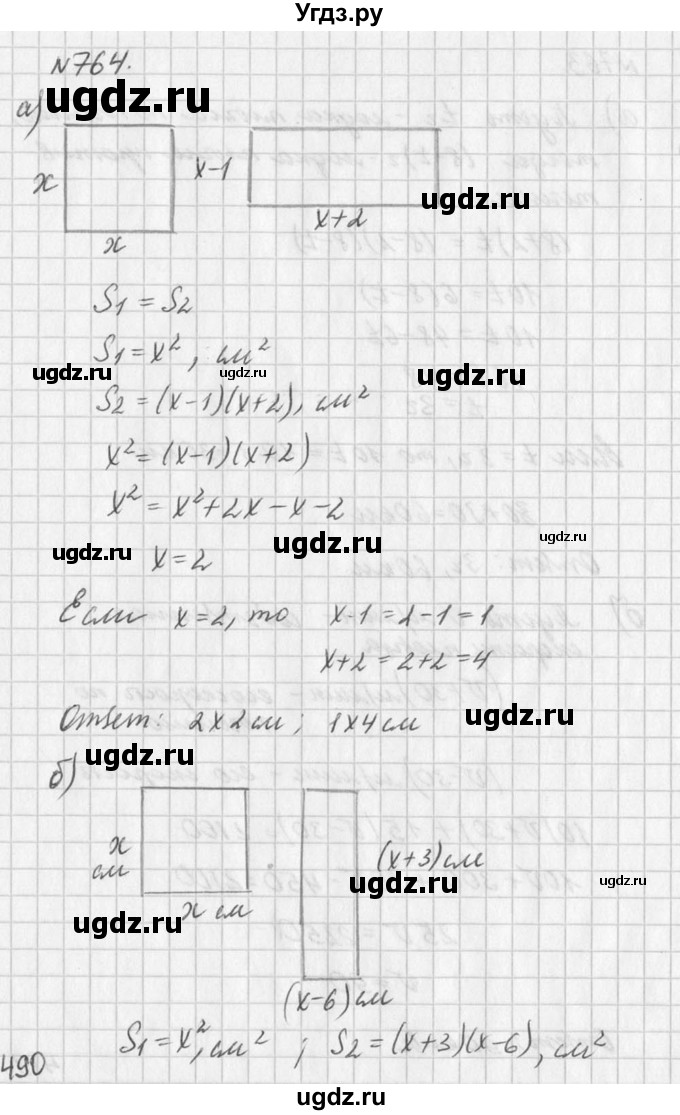 Угдз.ру
N764.
а)
ugdz.ru
x
x-1
ugdz.ru
x+2
x
S1 = S2
S1 = x², см²
ugdz.ru
ugdz.ru
ugdz.ru
S2 = (x-1)(x+2), см²
x² = (x-1)(x+2)
x² = x²+2x-x-2
ugdz.ru
ugdz.ru
ugdz.ru
x=2
Если x=2, то x-1=2-1=1
x+2=2+2=4
Ответ: 2x2см; 1x4см
ugdz.ru
ugdz.ru
б)
x
см
(x+3)см
ugdz.ru
ugdz.ru
x см
ugdz.ru
(x-6)см
S1=x², см² ; S2=(x+3)(x-6), см²
490
Угдз.ру